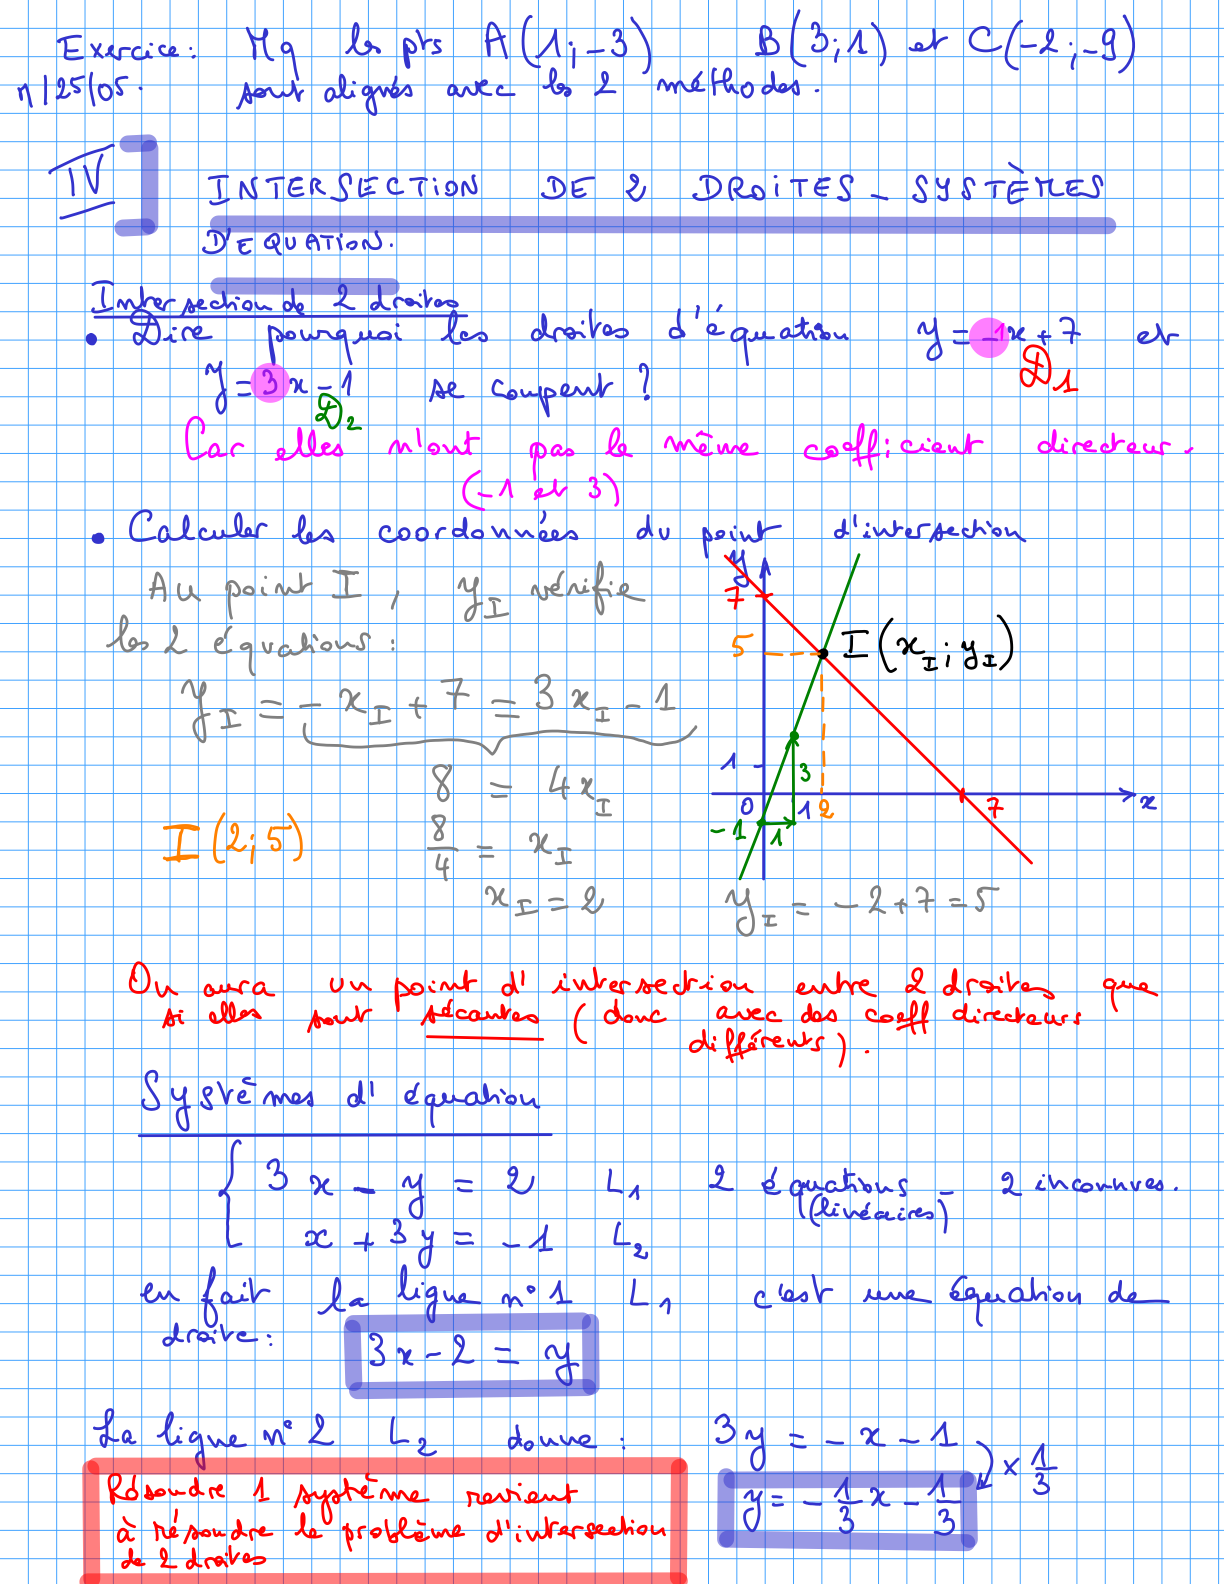 Exercice : Mq les pts A(1;-3) B(3;1) et C(-2;-9)
sont alignés avec les 2 méthodes.
IV] INTERSECTION DE 2 DROITES - SYSTÈMES
D'EQUATION.
Intersection de 2 droites
• Dire pourquoi les droites d'équation y = -1x + 7 et
D1
y = 3x - 1 se coupent ?
D2
Car elles n'ont pas le même coefficient directeur.
(-1 et 3)
• Calculer les coordonnées du point d'intersection
Au point I, yI vérifie
les 2 équations :
yI = -xI + 7 = 3xI - 1
8 = 4xI
8/4 = xI
xI = 2
I(2;5)
y
7
5
I(xI;yI)
1
3
0
1
2
7
x
-1
1
yI = -2+7 = 5
On aura un point d'intersection entre 2 droites que
si elles sont sécantes (donc avec des coeff directeurs
différents).
Systèmes d'équation
3x - y = 2 L1 2 équations - 2 inconnues.
(linéaires)
x + 3y = -1 L2
en fait la ligne n°1 L1 c'est une équation de
droite :
3x - 2 = y
La ligne n°2 L2 donne : 3y = -x - 1
× 1/3
y = -1/3 x - 1/3
Résoudre 1 système revient
à résoudre le problème d'intersection
de 2 droites